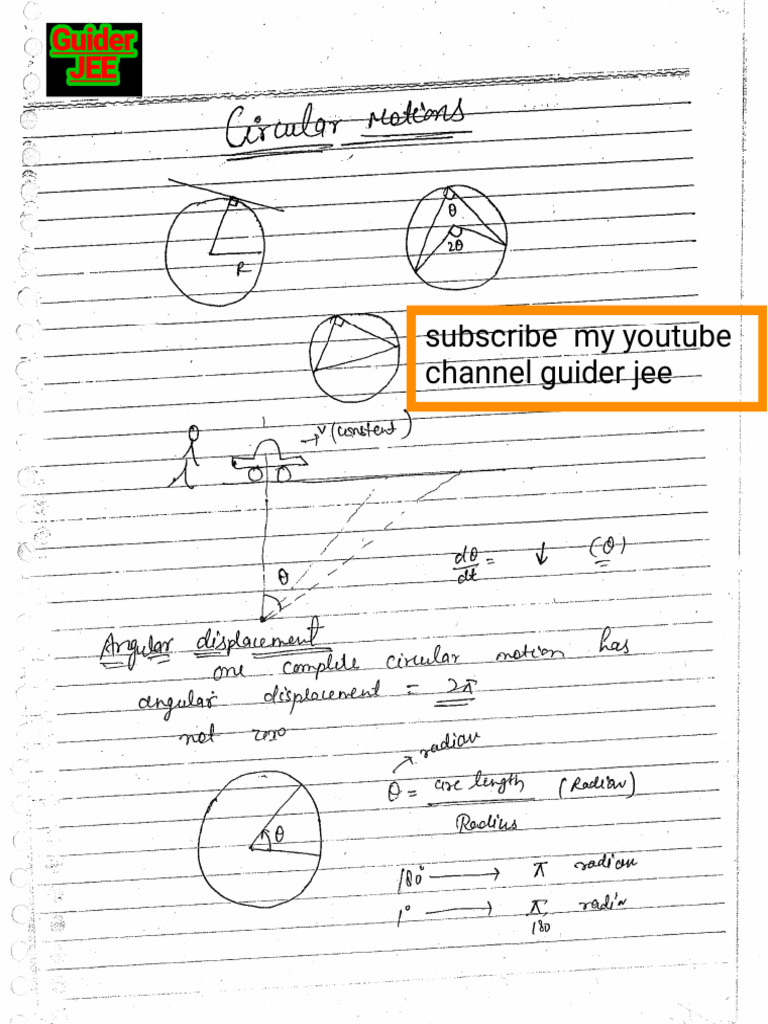 Guider
JEE
Circular Motions
R
θ
2θ
subscribe my youtube
channel guider jee
v (constant)
θ
dθ/dt = ↓ (θ)
Angular displacement
one complete circular motion has
angular displacement = 2π
not zero
radian
θ = arc length / Radius (Radian)
θ
180° → π radian
1° → π/180 radian